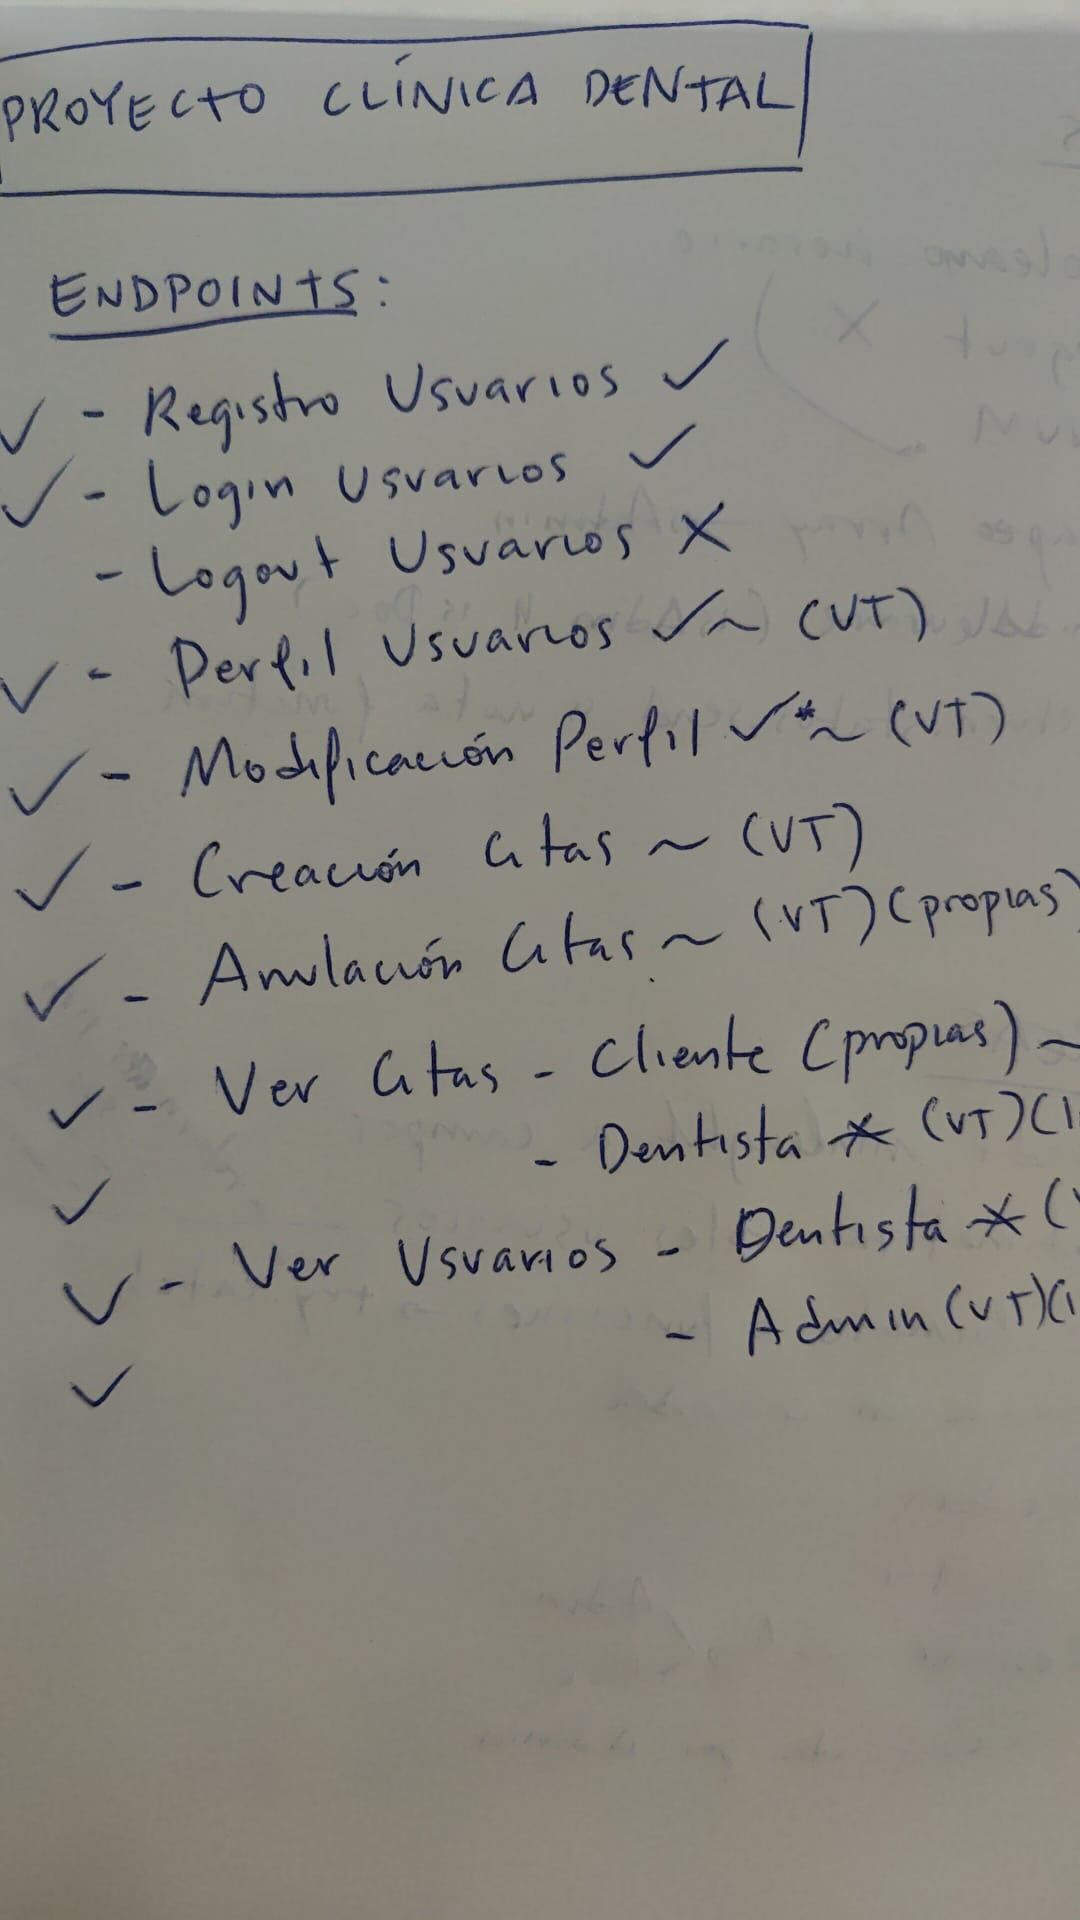 PROYECTO CLÍNICA DENTAL
ENDPOINTS:
✓ - Registro Usuarios ✓
✓ - Login Usuarios ✓
- Logout Usuarios X
✓ - Perfil Usuarios ✓~ (VT)
✓ - Modificación Perfil ✓*~ (VT)
✓ - Creación Citas ~ (VT)
✓ - Anulación Citas ~ (VT) (propias)
✓ - Ver Citas - Cliente (propias) ~
✓ - Dentista * (VT)(
✓ - Ver Usuarios - Dentista * (
✓ - Admin (VT)(